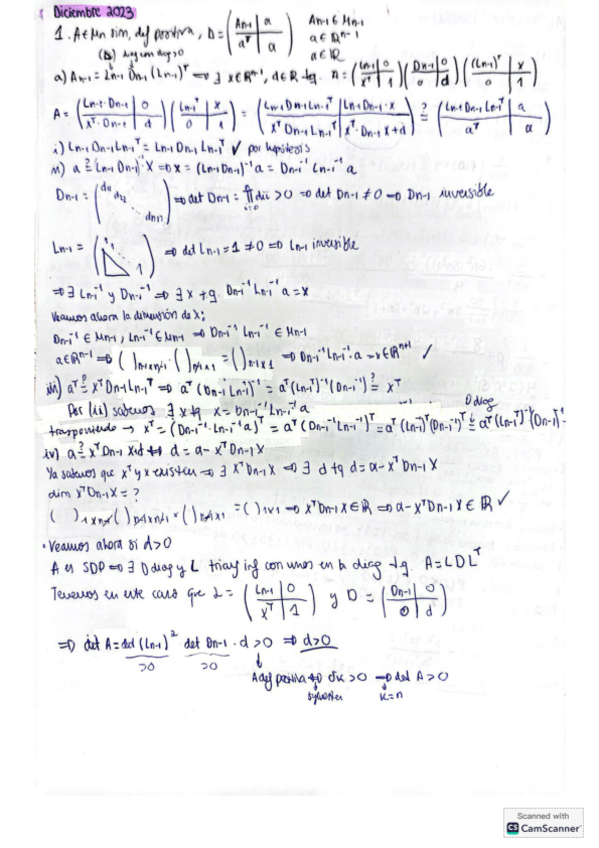 Diciembre 2023
1. A ∈ Mn sim, def positiva, D = (An-1 | a / aᵀ | a) An-1 ∈ Mn-1
a ∈ ℝⁿ⁻¹
a ∈ ℝ
a) An-1 = Ln-1 Dn-1 (Ln-1)ᵀ ⇒ ∃ x ∈ ℝⁿ⁻¹, d ∈ ℝ tq. A = (Ln-1 | 0 / xᵀ | 1) (Dn-1 | 0 / 0 | d) ((Ln-1)ᵀ | x / 0 | 1)
A = (Ln-1·Dn-1 | 0 / xᵀ·Dn-1 | d) (Ln-1ᵀ | x / 0 | 1) = (Ln-1 Dn-1 Ln-1ᵀ | Ln-1 Dn-1·x / xᵀ Dn-1 Ln-1ᵀ | xᵀ·Dn-1 x + d) ?= (Ln-1 Dn-1 Ln-1ᵀ | a / aᵀ | a)
i) Ln-1 Dn-1 Ln-1ᵀ = Ln-1 Dn-1 Ln-1ᵀ ✓ por hipótesis
ii) a ?= (Ln-1 Dn-1) x ⇒ x = (Ln-1 Dn-1)⁻¹ a = Dn-1⁻¹ Ln-1⁻¹ a
Dn-1 = (d11 d22 ... dnn) ⇒ det Dn-1 = ∏ dii > 0 ⇒ det Dn-1 ≠ 0 ⇒ Dn-1 inversible
Ln-1 = (1 1 1) ⇒ det Ln-1 = 1 ≠ 0 ⇒ Ln-1 inversible
⇒ ∃ Ln-1⁻¹ y Dn-1⁻¹ ⇒ ∃ x tq. Dn-1⁻¹ Ln-1⁻¹ a = x
Veamos ahora la dimensión de x:
Dn-1⁻¹ ∈ Mn-1, Ln-1⁻¹ ∈ Mn-1 ⇒ Dn-1⁻¹ Ln-1⁻¹ ∈ Mn-1
a ∈ ℝⁿ⁻¹ ⇒ ( )n-1xn-1 · ( )n-1x1 = ( )n-1x1 ⇒ Dn-1⁻¹ Ln-1⁻¹ a = x ∈ ℝⁿ⁻¹ ✓
iii) aᵀ ?= xᵀ Dn-1 Ln-1ᵀ ⇒ aᵀ (Dn-1 Ln-1ᵀ)⁻¹ = aᵀ (Ln-1ᵀ)⁻¹ (Dn-1)⁻¹ ?= xᵀ
Por (ii) sabemos ∃ x tq x = Dn-1⁻¹ Ln-1⁻¹ a D diag
trasponiendo → xᵀ = (Dn-1⁻¹ · Ln-1⁻¹ a)ᵀ = aᵀ (Dn-1⁻¹ Ln-1⁻¹)ᵀ = aᵀ (Ln-1⁻¹)ᵀ (Dn-1⁻¹)ᵀ = aᵀ (Ln-1ᵀ)⁻¹ (Dn-1)⁻¹
iv) a ?= xᵀ Dn-1 x + d ⇔ d = a - xᵀ Dn-1 x
Ya sabemos que xᵀ y x existen ⇒ ∃ xᵀ Dn-1 x ⇒ ∃ d tq d = a - xᵀ Dn-1 x
dim xᵀ Dn-1 x = ?
( )1xn-1 ( )n-1xn-1 · ( )n-1x1 = ( )1x1 ⇒ xᵀ Dn-1 x ∈ ℝ ⇒ a - xᵀ Dn-1 x ∈ ℝ ✓
· Veamos ahora si d > 0
A es SDP ⇒ ∃ D diag y L triang inf con unos en la diag tq. A = LDLᵀ
Tenemos en este caso que L = (Ln-1 | 0 / xᵀ | 1) y D = (Dn-1 | 0 / 0 | d)
⇒ det A = det (Ln-1)² det Dn-1 · d > 0 ⇒ d > 0
>0 >0
A def positiva ⇔ δk > 0 ⇒ det A > 0
sylvester k=n
Scanned with
CS CamScanner